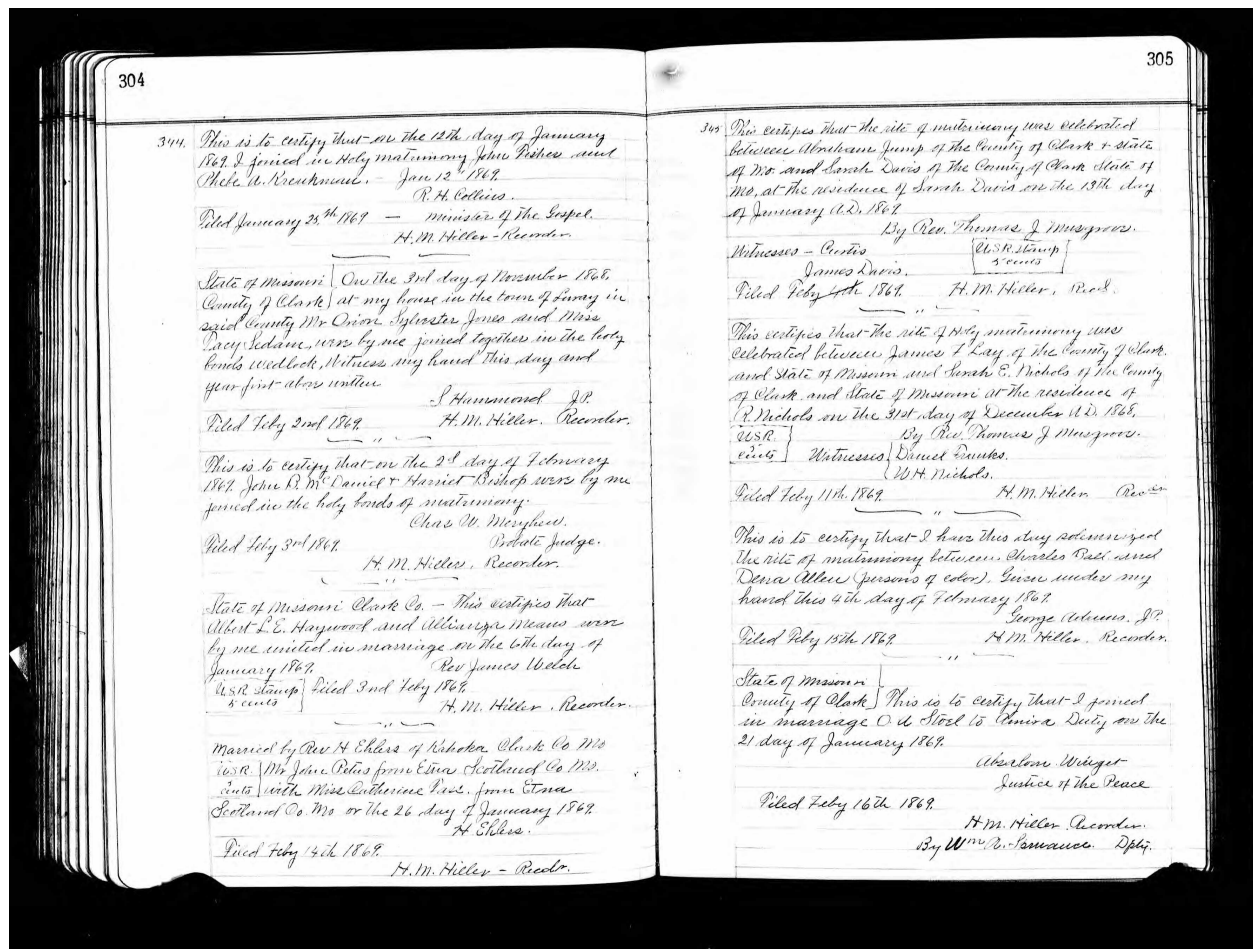 304
344. This is to certify that on the 12th day of January
1869. I joined in Holy matrimony John Fisher and
Phebe A. Kreukman. - Jan 12th 1869
R. H. Collins.
Filed January 25th 1869 - minister of the Gospel.
H. M. Hiller - Recorder.
State of Missouri } On the 3rd day of November 1868.
County of Clark } at my house in the town of Luray in
said County Mr Orion Sylvester Jones and Miss
Pacy Sedam, were by me joined together in the holy
bonds wedlock, Witness my hand this day and
year first above written
S Hammond J.P.
Filed Feby 2nd 1869. H. M. Hiller. Recorder.
This is to certify that on the 2d day of February
1869. John R. McDaniel & Harriet Bishop were by me
joined in the holy bonds of matrimony.
Chas W. Meryhew.
Filed Feby 3rd 1869. Probate Judge.
H. M. Hiller. Recorder.
State of Missouri Clark Co. - This certifies that
Albert L. E. Haywood and Allianza Means were
by me united in marriage on the 6th day of
January 1869. Rev James Welch
U.S.R. stamp } Filed 3nd Feby 1869.
5 cents H. M. Hiller. Recorder.
Married by Rev. H Ehlers of Kahoka Clark Co Mo
U.S.R. } Mr John Peters from Etna Scotland Co Mo.
cents } with Miss Catherine from Etna
Scotland Co. Mo or the 26 day of January 1869.
H Ehlers.
Filed Feby 14th 1869.
H. M. Hiller - Recdr.
305
345 This certifies that the rite of matrimony was celebrated
between Abraham Jump of the County of Clark & state
of Mo. and Sarah Davis of the County of Clark State of
Mo, at the residence of Sarah Davis on the 13th day
of January A.D. 1869.
By Rev. Thomas J Musgrove.
Witnesses - Curtis [U.S.R. stamp
James Davis. 5 cents]
Filed Feby 4th 1869. H. M. Hiller, Recd.
This certifies that the rite of Holy matrimony was
celebrated between James F Lay. of the County of Clark.
and State of Missouri and Sarah E. Nichols of the County
of Clark and State of Missouri at the residence of
R. Nichols on the 31st day of December A.D. 1868.
U.S.R. } By Rev. Thomas J Musgrove.
cents } Witnesses { Daniel
W. H. Nichols.
Filed Feby 11th 1869. H. M. Hiller Recder
This is to certify that I have this day solemnized
the rite of matrimony between Charles Ball and
Dena Allen (persons of color). Given under my
hand this 4th day of February 1869.
George Adams. J.P.
Filed Feby 15th 1869. H. M. Hiller. Recorder.
State of Missouri }
County of Clark } This is to certify that I joined
in marriage O A Stoel to Almira Duty on the
21 day of January 1869.
Absalom Winget
Justice of the Peace
Filed Feby 16th 1869.
H. M. Hiller. Recorder.
By Wm A. Dpty.